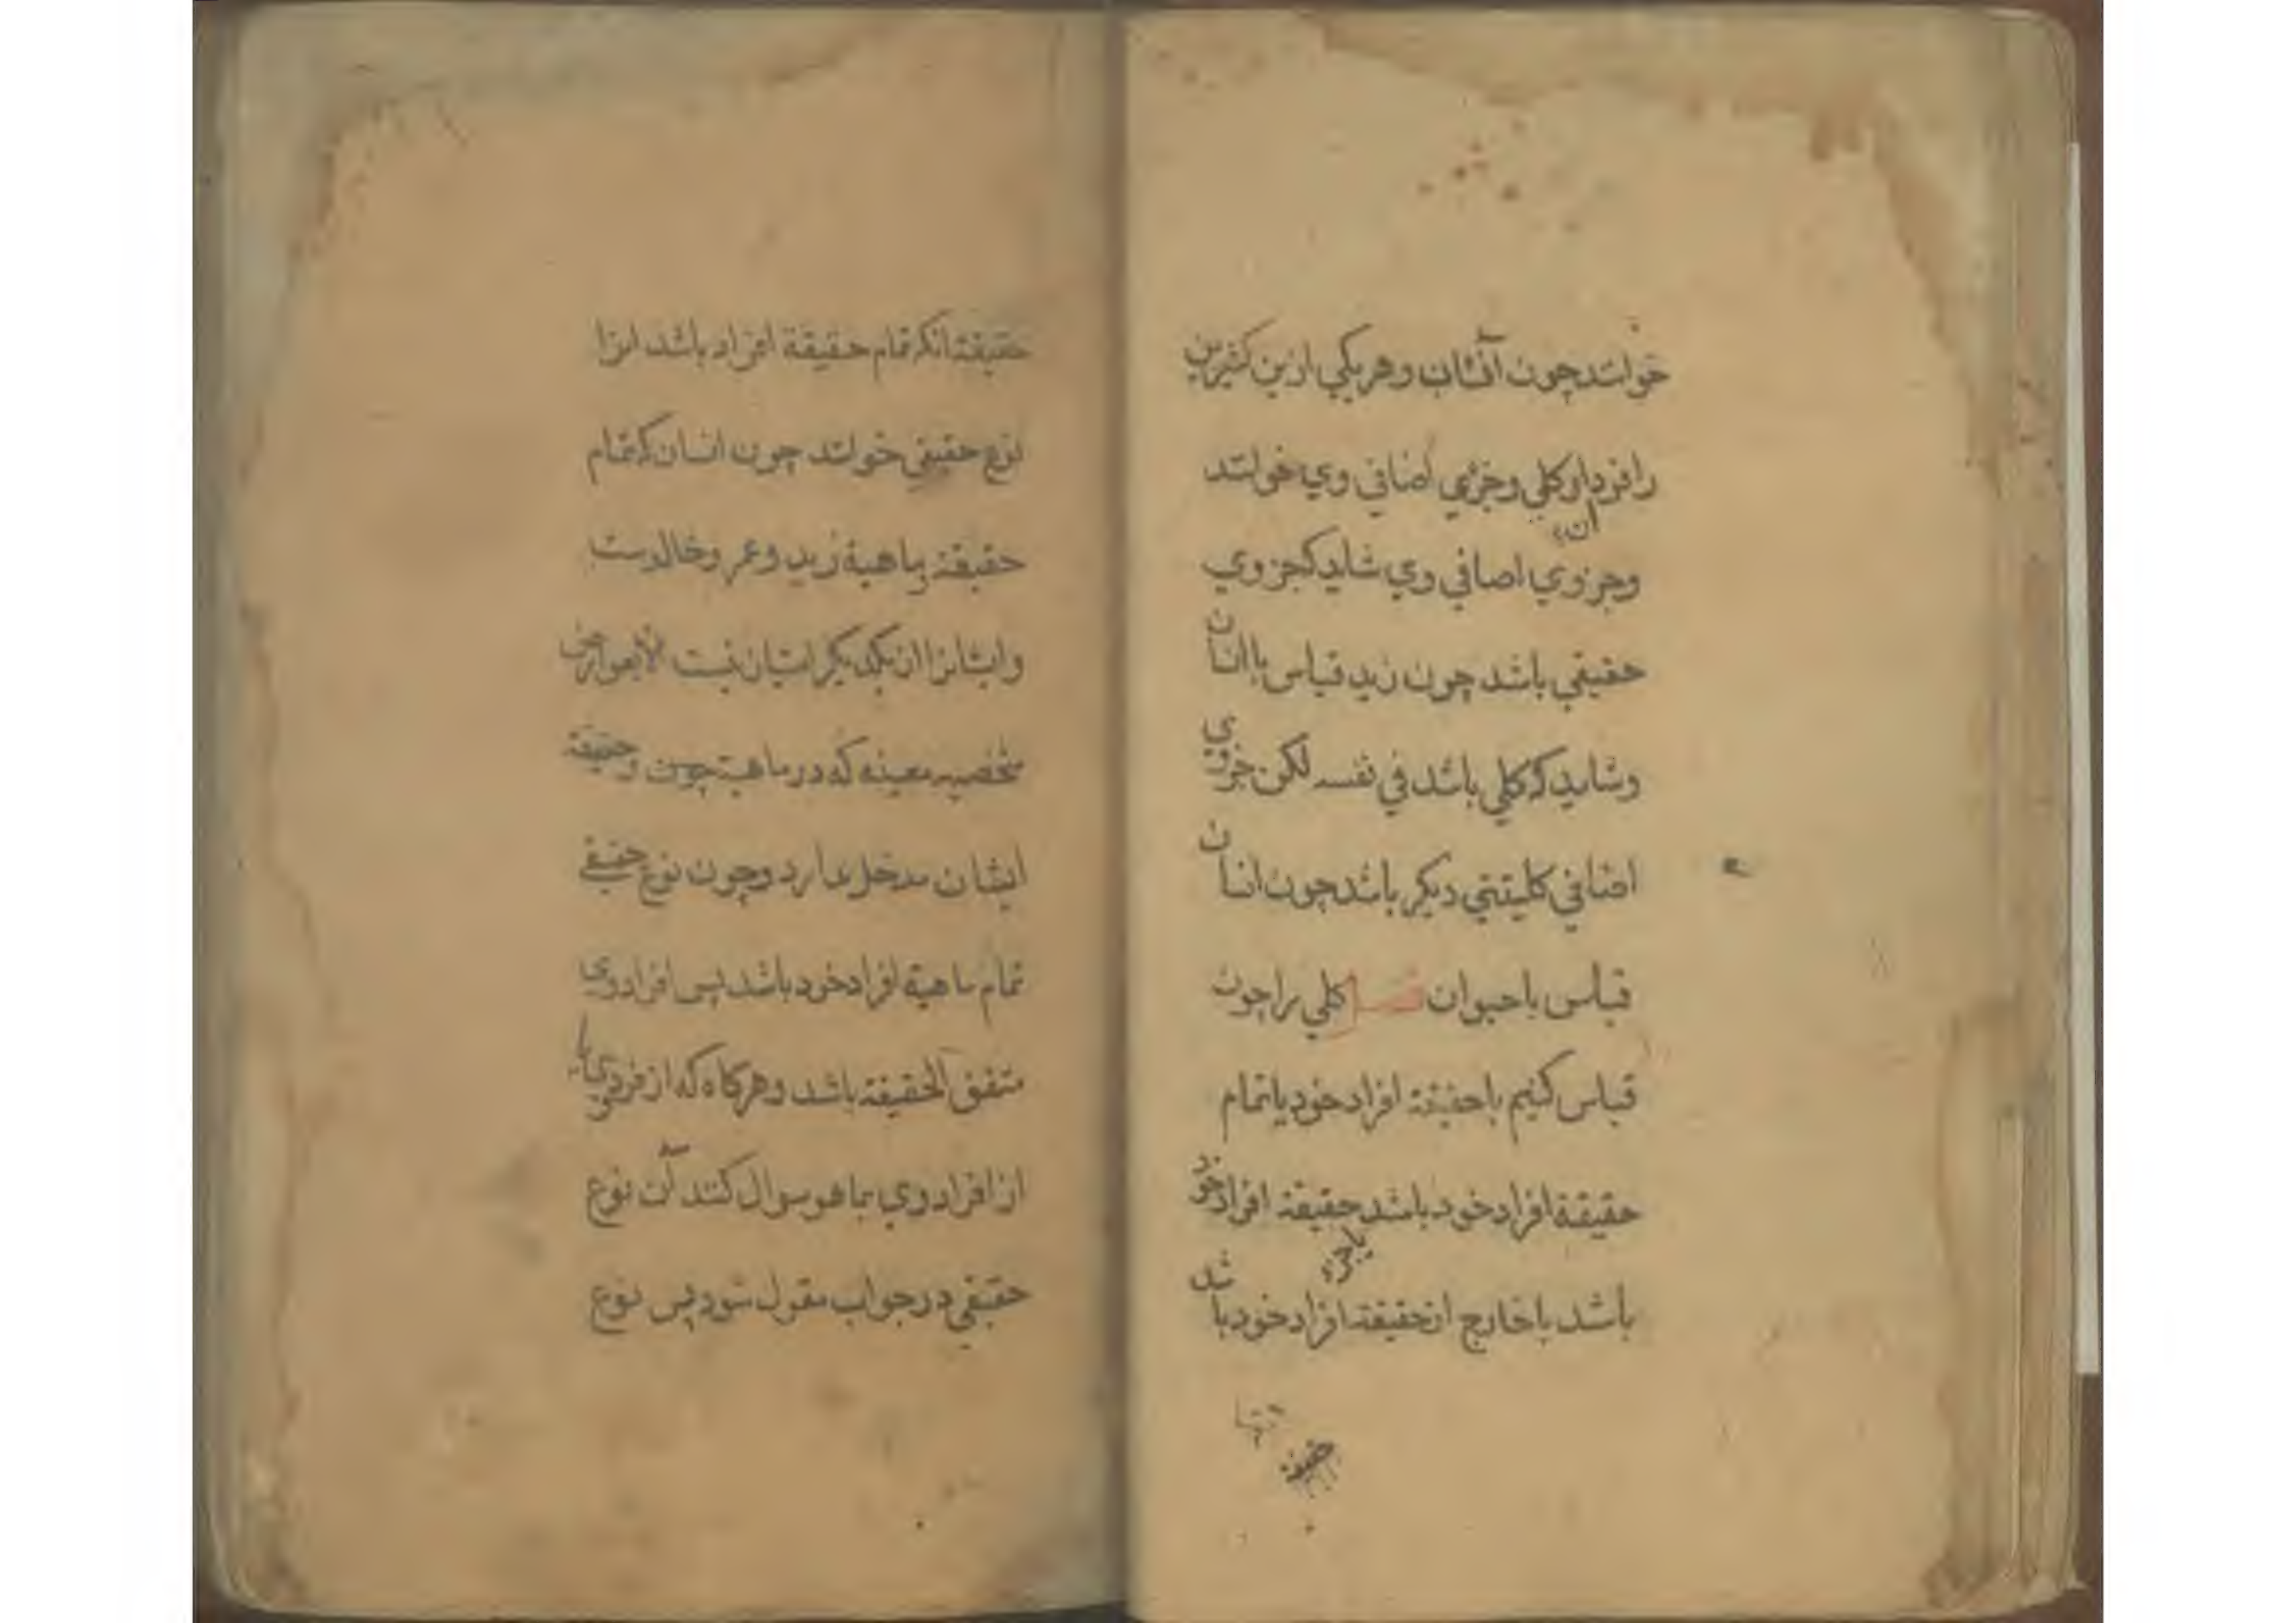 خوانند چون آفتاب و هر یکي ازین کثیرین
را فرد ان کلي و جزئي اضافي وي خوانند
ان
و جزوي اضافي وي شاید کجزوي
حقیقي باشد چون زید قیاس باانسان
و شاید که کلي باشد في نفسه لکن جزوي
اضافي کلیتي دیکر باشد چون انسان
قیاس باحیوان فصل کلي را چون
قیاس کنیم باحقیقة افراد خود یا تمام
حقیقة افراد خود باشد حقیقة افراد خود
یا جزء
باشد یا خارج از حقیقة افراد خود باشد
حقیقة
حقیقة انکه تمام حقیقة افراد باشد انرا
نوع حقیقي خوانند چون انسان که تمام
حقیقة و ماهیة زید و عمر و خالدست
و ایشانرا از یکدیکر امتیاز نیست الا بعوارض
مشخصه معینه که در ماهیة چون و حقیقة
ایشان مدخل ندارد و چون نوع حقیقي
تمام ماهیة افراد خود باشد پس افراد وي
متفق الحقیقة باشد و هرکاه که از فردي یا
از افراد وي بما هو سوال کنند آن نوع
حقیقي در جواب مقول شود پس نوع